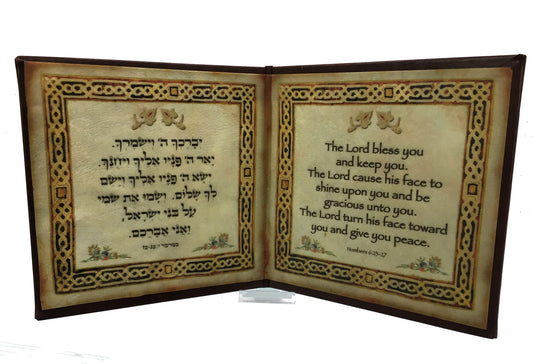 יברכך ה' וישמרך.
יאר ה' פניו אליך ויחנך.
ישא ה' פניו אליך וישם
לך שלום. ושמו את שמי
על בני ישראל,
ואני אברכם.
במדבר ו:כג-כז
The Lord bless you
and keep you.
The Lord cause his face to
shine upon you and be
gracious unto you.
The Lord turn his face toward
you and give you peace.
Numbers 6:23-27